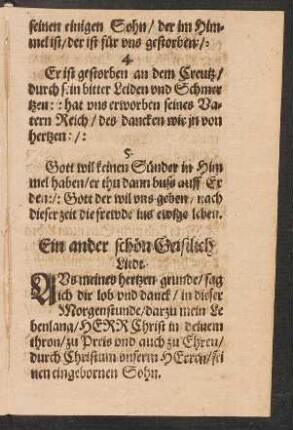 seinen einigen Sohn/ der im Him-
mel ist/ der ist für vns gestorben/:
4.
Er ist gestorben an dem Creutz/
durch sein bitter Leiden vnd Schmer
tzen: : hat vns erworben seines Va-
tern Reich/ des dancken wir jn von
hertzen:/:
5.
Gott wil keinen Sünder in Him
mel haben/ er thu dann buß auff Er
den:/: Gott der wil vns geben/ nach
dieser zeit die frewde ins ewige leben.
Ein ander schön Geistlich
Liedt.
AVs meines hertzen grunde/ sag
ich dir lob vnd danck/ in dieser
Morgenstunde/ darzu mein Le
benlang/ HERR Christ in deinem
thron/ zu Preis vnd auch zu Ehren/
durch Christum vnserm HErren/ sei
nen eingebornen Sohn.